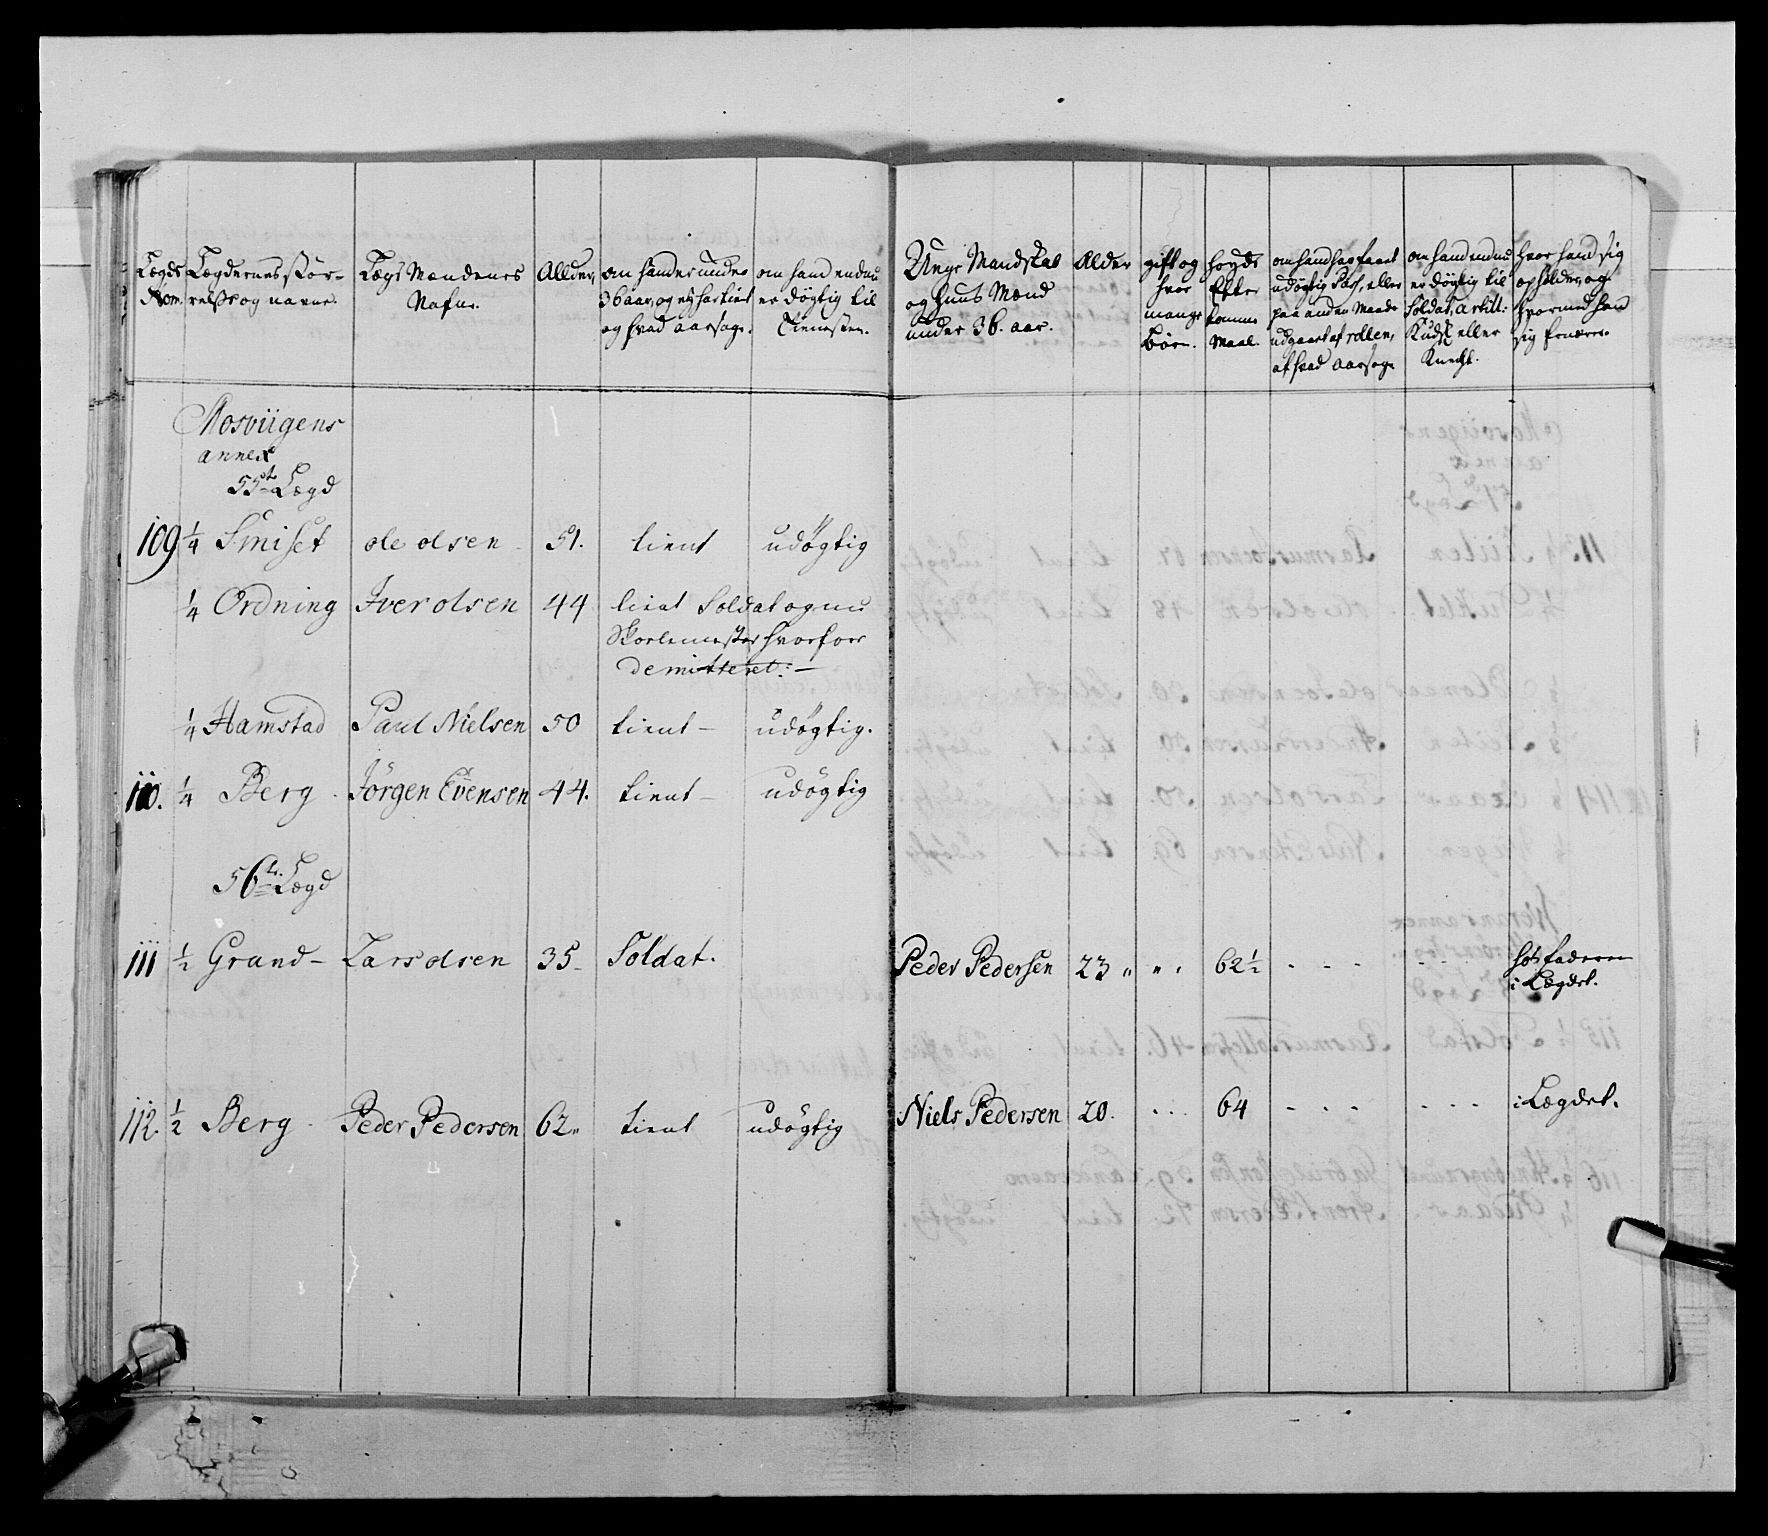 Lægds Nom:
Lægdernes stør-
relße og navne.
Lægs Mændenes
Nafne.
Allder,
om hand er under
36 aar, og ej har tient
og hvad aarsage.
om hand endnu
er døgtig til
Tienesten.
Unge Mandskab
og Huus Mænd
under 36. aar.
Alder
gift og
hvor
mange
Børn.
høyde
Efter
tomme
Maal.
om hand har faaet
udøgtig Pas, eller
paa anden Maade
udgaaet af rollen,
af hvad aarsag.
om hand endnu
er døgtig til
Soldat, artill:
Kudsk eller
Knecht.
hvor hand sig
opholder, og
hvormed hand
sig ernærer.
Mosviigens
annex
55te Lægd
109 1/4 Smiset ole olsen 51. tient udøgtig
1/4 Ordning Iver olsen 44 tient Soldat og nu
Skolemester hvorfor
demitteret:-
1/4 Hamstad Paul Nielsen 50 tient - udøgtig.
110. 1/4 Berg Jörgen Evensen 44. tient - udøgtig
56te Lægd
111 1/2 Grand - Lars olsen 35 Soldat. Peder Pedersen 23 " " " 62 1/2 - - - - - - hos faderen
i Lægdet.
112. 1/2 Berg - Peder Pedersen 62" tient udøgtig Niels Pedersen 20. - - - 64 - - - - - - i Lægdet.